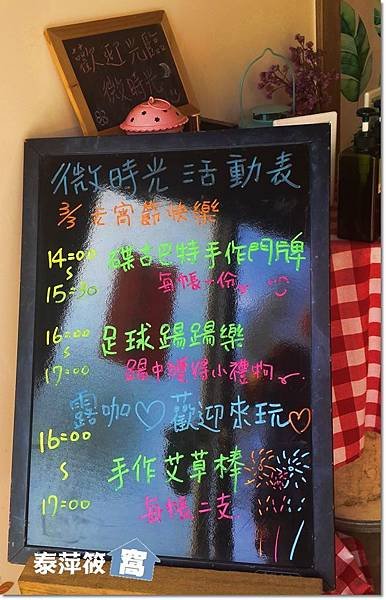 歡迎光臨
微時光
微時光 活動表
3/3 元宵節快樂
14:00
S
15:30
碟古巴特手作門牌
每帳一份
16:00
S
17:00
足球踢踢樂
踢中獲得小禮物
露咖♡歡迎來玩♡
16:00
S
17:00
手作艾草棒
每帳二支
泰萍筱窩